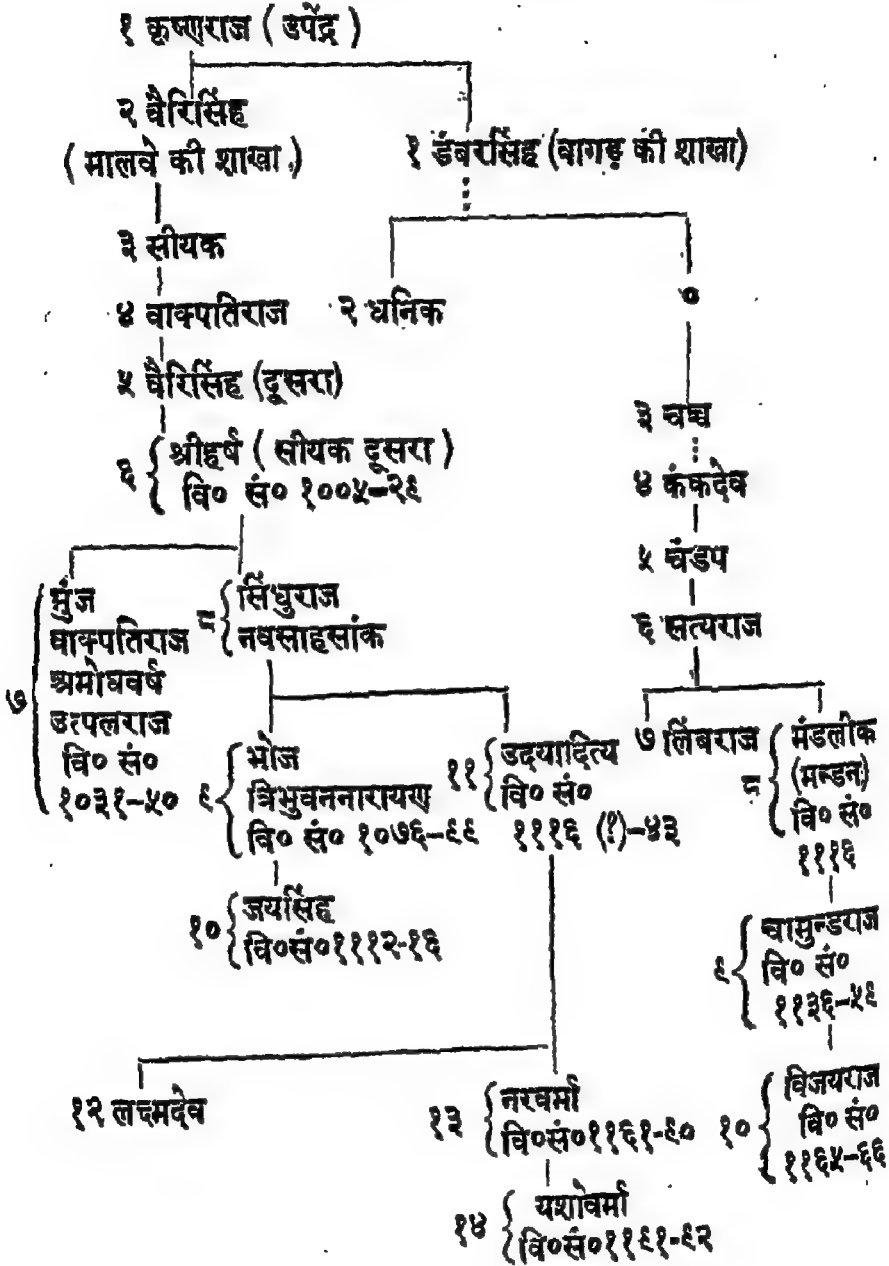 १ कृष्णराज ( उपेंद्र )
२ वैरिसिंह
( मालवे की शाखा )
१ डंबरसिंह (वागड़ की शाखा)
३ सीयक
४ वाक्पतिराज
२ धनिक
०
५ वैरिसिंह (दूसरा)
३ चच्च
६ श्रीहर्ष ( सीयक दूसरा )
वि० सं० १००५-२९
४ कंकदेव
५ चंडप
६ सत्यराज
७ मुंज
वाक्पतिराज
अमोघवर्ष
उत्पलराज
वि० सं०
१०३१-५०
८ सिंधुराज
नवसाहसांक
९ भोज
त्रिभुवननारायण
वि० सं० १०७६-९९
११ उदयादित्य
वि० सं०
१११६ (?)-४३
७ लिंबराज
८ मंडलीक
(मन्डन)
वि० सं०
१११६
१० जयसिंह
वि०सं०१११२-१६
९ चामुन्डराज
वि० सं०
११३६-५९
१२ लक्ष्मदेव
१३ नरवर्मा
वि०सं०११६१-९०
१० विजयराज
वि० सं०
११६५-६६
१४ यशोवर्मा
वि०सं०११९१-९२